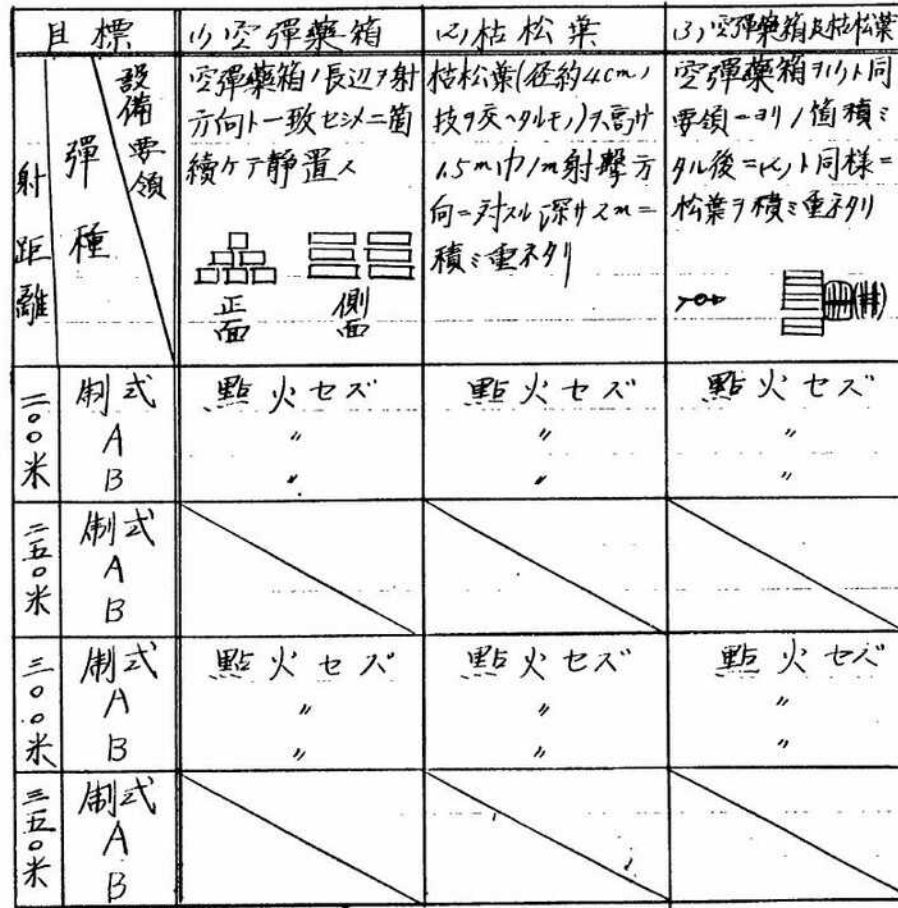 目標 (1)空彈藥箱 (2)枯松葉 (3)空彈藥箱及枯松葉
設備要領
彈種
射距離
空彈藥箱ノ長辺ヲ射
方向ト一致セシメ二箇
續ケテ静置ス
正面
側面
枯松葉(径約4cmノ
技ヲ交ヘタルモノ)ヲ高サ
1.5m巾1m射擊方
向ニ対スル深サ2mニ
積ミ重ネタリ
空彈藥箱ヲ(1)ト同
要領ニヨリ1箇積ミ
タル後ニ(2)ト同様ニ
松葉ヲ積ミ重ネタリ
二〇〇米 制式 點火セズ 點火セズ 點火セズ
A 〃 〃 〃
B 〃 〃 〃
二五〇米 制式
A
B
三〇〇米 制式 點火セズ 點火セズ 點火セズ
A 〃 〃 〃
B 〃 〃 〃
三五〇米 制式
A
B